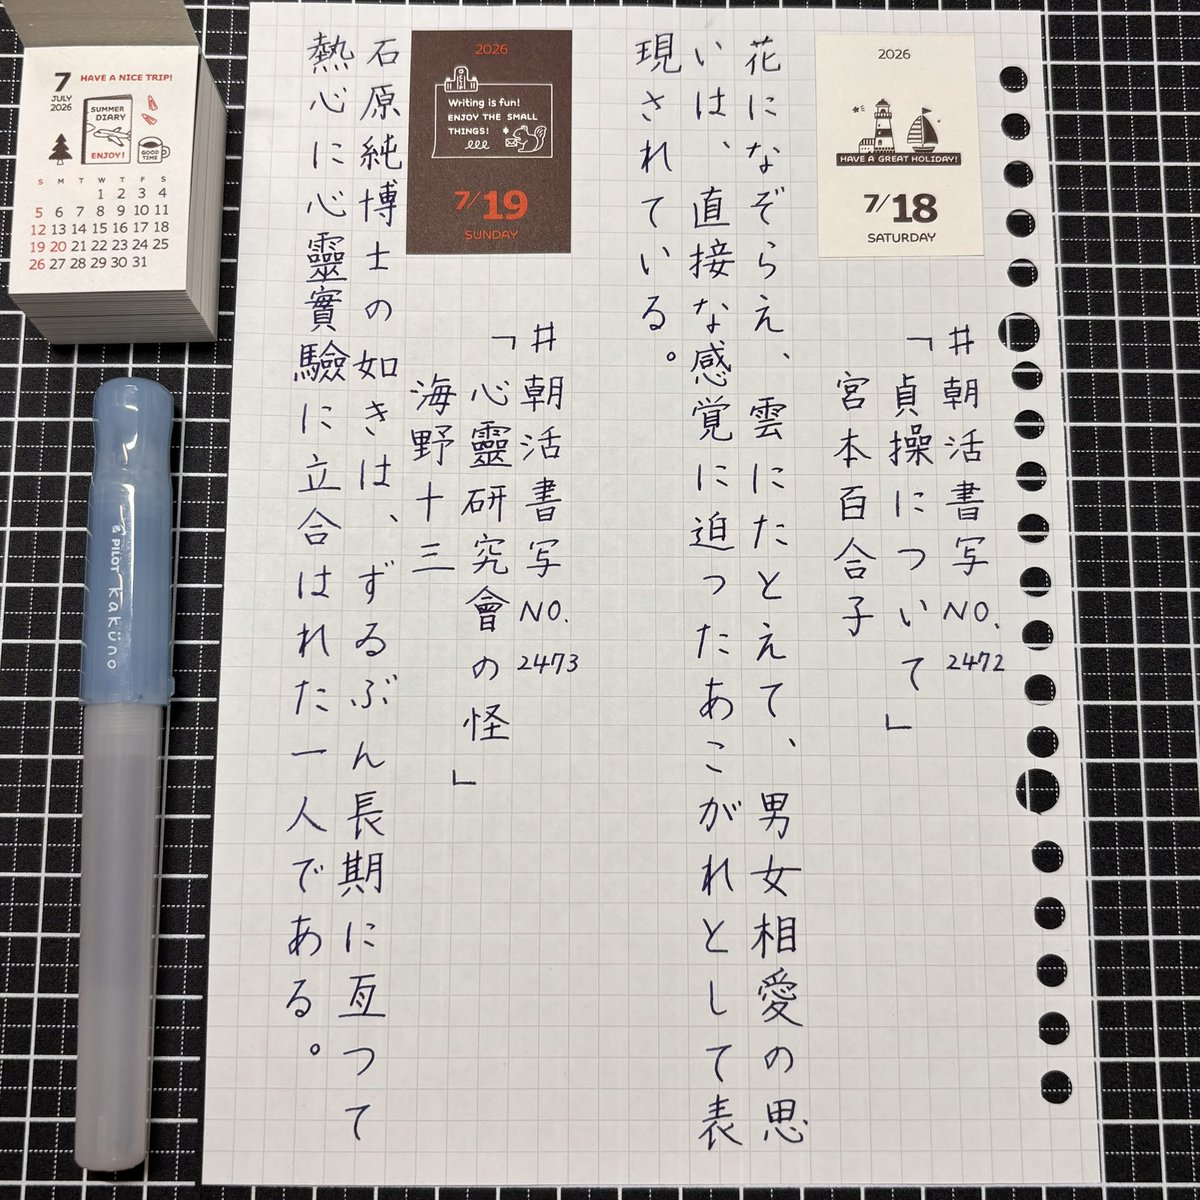 2026
HAVE A GREAT HOLIDAY!
7/18
SATURDAY
#朝活書写NO.2472
「貞操について」
宮本百合子
花になぞらえ、雲にたとえて、男女相愛の思
いは、直接な感覚に迫ったあこがれとして表
現されている。
2026
Writing is fun!
ENJOY THE SMALL
THINGS!
7/19
SUNDAY
#朝活書写NO.2473
「心靈研究會の怪」
海野十三
石原純博士の如きは、ずゐぶん長期に亙って
熱心に心靈實驗に立合はれた一人である。
7
JULY
2026
HAVE A NICE TRIP!
SUMMER
DIARY
ENJOY!
GOOD
TIME
S M T W T F S
1 2 3 4
5 6 7 8 9 10 11
12 13 14 15 16 17 18
19 20 21 22 23 24 25
26 27 28 29 30 31
PILOT kaküno